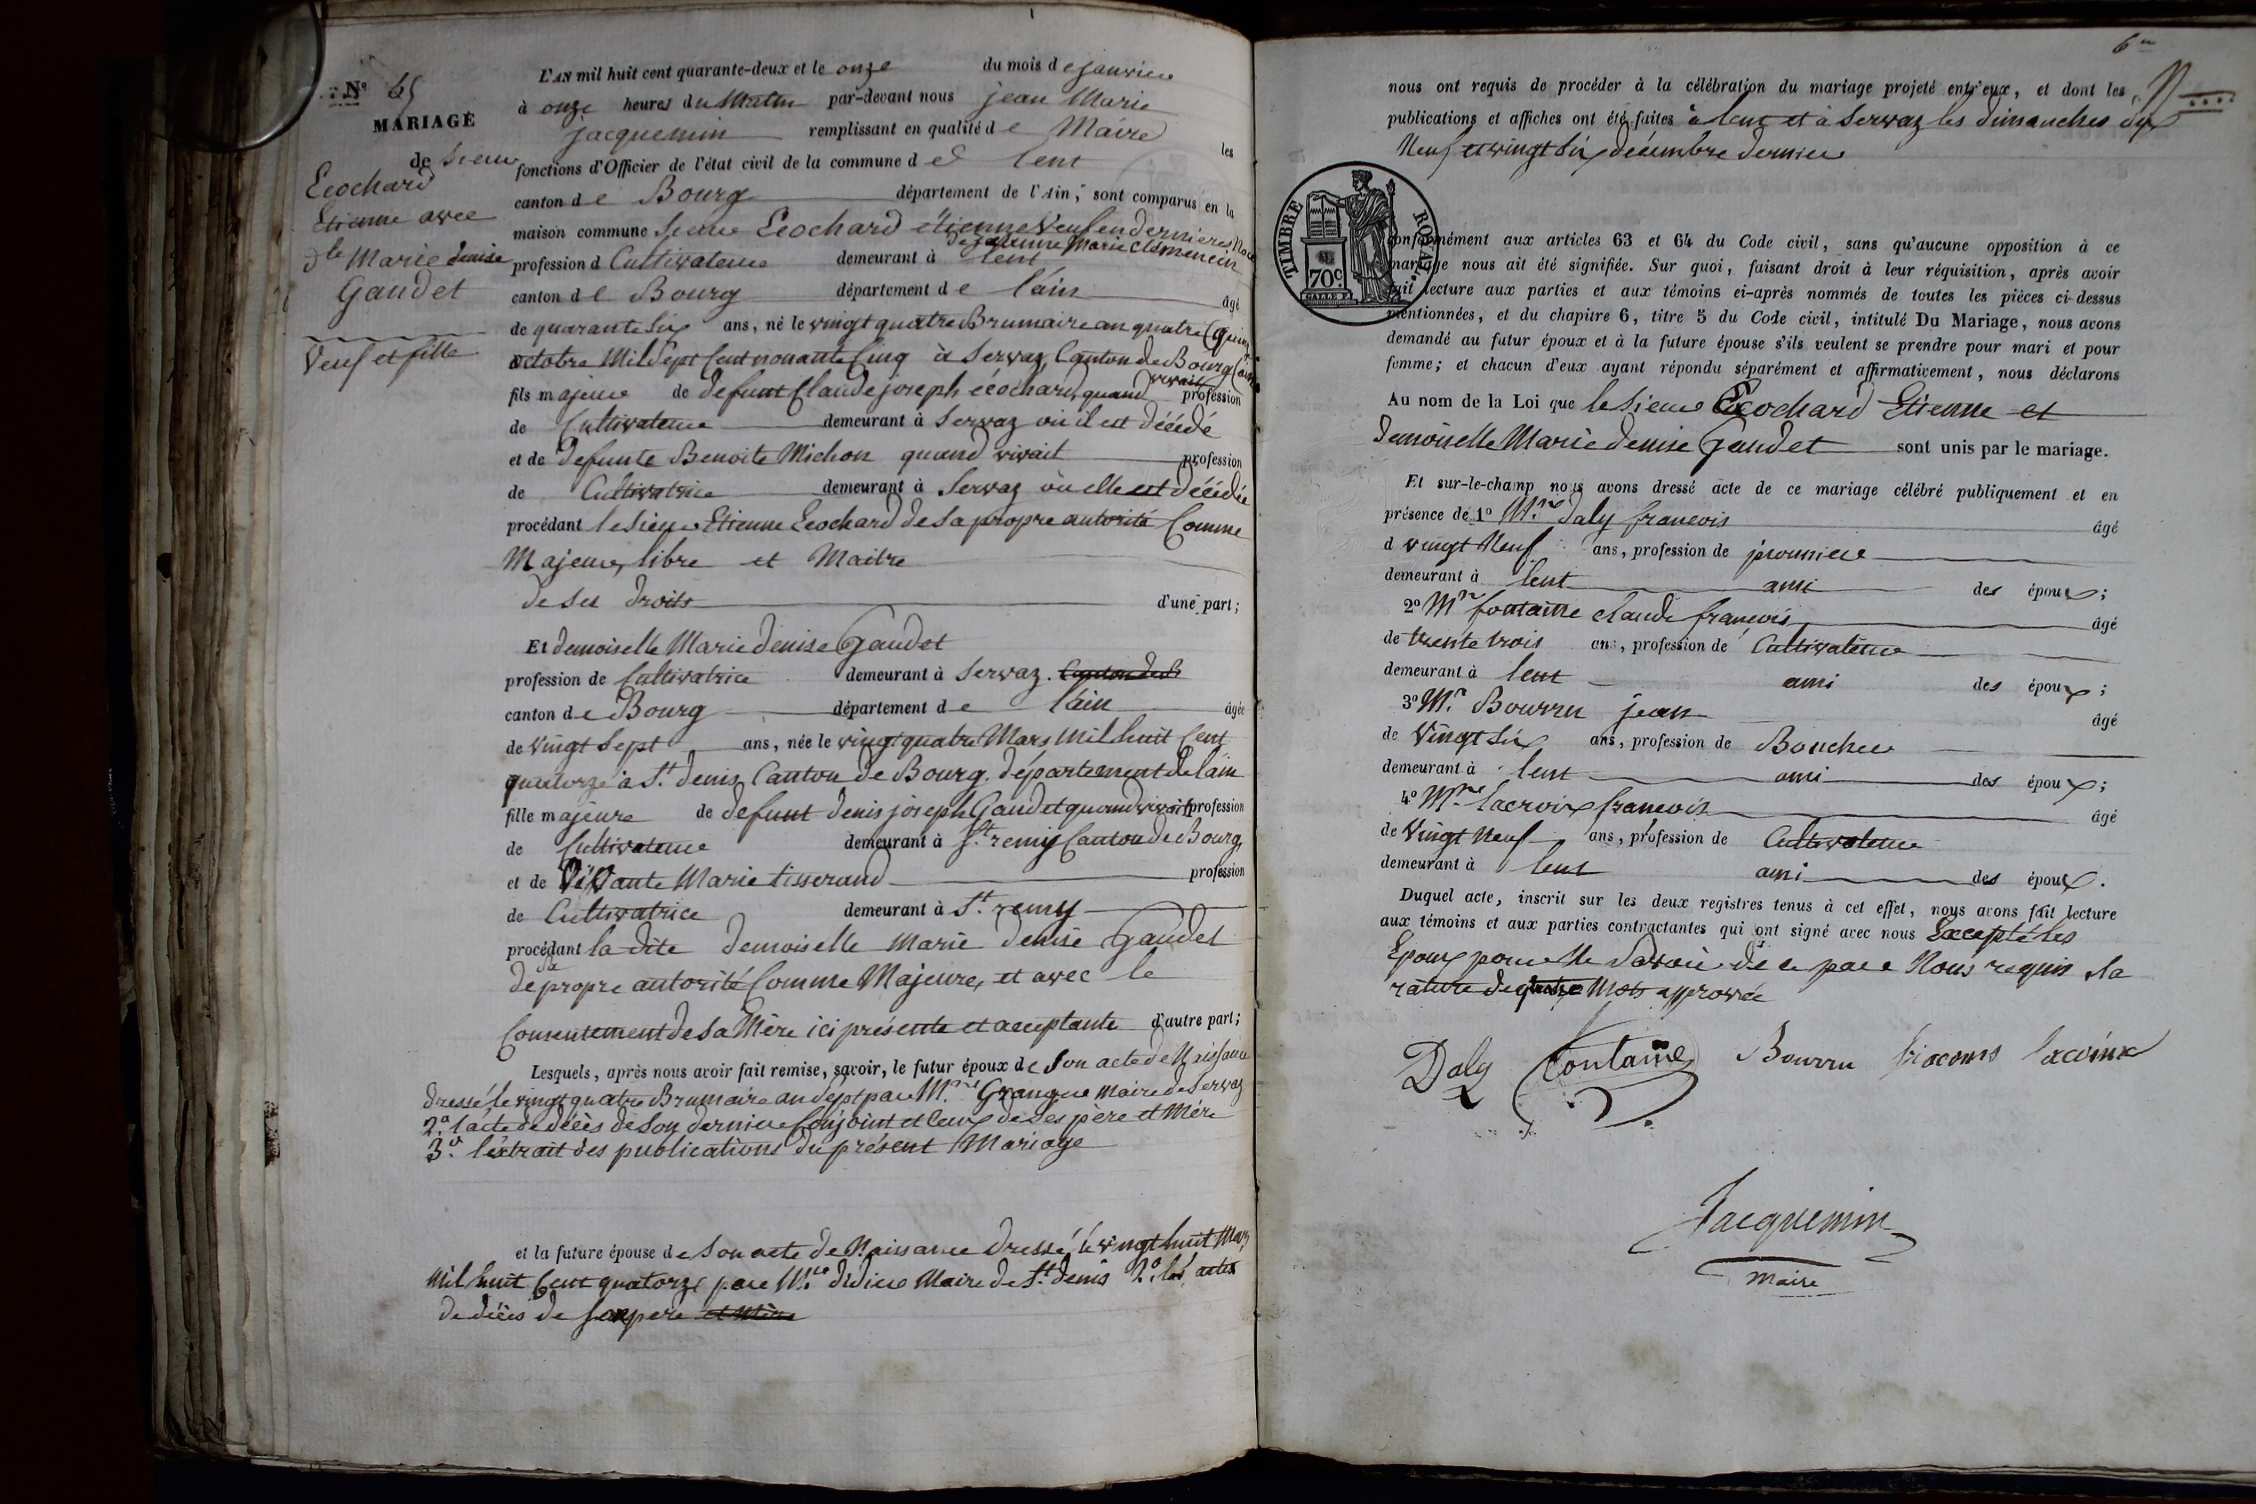 N.º 65
MARIAGE
de sieur
Ecochard
Etienne avec
dlle Marie denise
Gaudet
Veuf et fille
L'AN mil huit cent quarante-deux et le onze du mois de janvier
à onze heures du Matin par-devant nous jean Marie
jacquemin remplissant en qualité de Maire les
fonctions d'Officier de l'état civil de la commune de lent
canton de Bourg département de l'Ain, sont comparus en la
maison commune sieur Ecochard étienne Veuf en dernieres Noces
de jeanne Marie Clémencin
profession d Cultivateur demeurant à lent
canton de Bourg département de l'ain âgé
de quarante six ans, né le vingt quatre Brumaire an quatre
octobre Mil Sept Cent nonante Cinq à Servaz, Canton de Bourg
fils majeur de defunt Claude joseph écochard, quand vivait profession
de Cultivateur demeurant à Servaz où il est décédé
et de defunte Benoite Michon quand vivait profession
de Cultivatrice demeurant à Servaz où elle est décédée
procédant le sieur Etienne Ecochard de sa propre autorité Comme
Majeur, libre et Maitre
de ses droits d'une part;
Et demoiselle Marie denise Gaudet
profession de Cultivatrice demeurant à Servaz. Canton de B
canton de Bourg département de l'ain âgée
de Vingt Sept ans, née le vingt quatre Mars Mil huit Cent
quatorze à St. denis Canton de Bourg. département de l'ain
fille majeure de defunt denis joseph Gaudet quand vivait profession
de Cultivateur demeurant à St. remy Canton de Bourg
et de Vivante Marie tisserand profession
de Cultivatrice demeurant à St. remy
procédant la dite demoiselle Marie denise Gaudet
de sa propre autorité Comme Majeure, et avec le
Consentement de sa Mère ici présente et acceptante d'autre part;
Lesquels, après nous avoir fait remise, savoir, le futur époux de son acte de Naissance
dressé le vingt quatre Brumaire an Sept par Mr. Grangue Maire de Servaz
2.º l'acte de décès de son dernier Conjoint et ceux de ses père et Mère
3.º l'extrait des publications du présent Mariage
et la future épouse de son acte de Naissance dressé le vingt huit Mars
Mil huit Cent quatorze par Mr. didier Maire de St. denis 2.º les actes
de décès de son père et Mère
6
nous ont requis de procéder à la célébration du mariage projeté entr'eux, et dont les
publications et affiches ont été faites à lent et à Servaz les dimanches dix
Neuf et vingt Six décembre dernier
TIMBRE ROYAL
70c.
conformément aux articles 63 et 64 du Code civil, sans qu'aucune opposition à ce
mariage nous ait été signifiée. Sur quoi, faisant droit à leur réquisition, après avoir
fait lecture aux parties et aux témoins ci-après nommés de toutes les pièces ci-dessus
mentionnées, et du chapitre 6, titre 5 du Code civil, intitulé Du Mariage, nous avons
demandé au futur époux et à la future épouse s'ils veulent se prendre pour mari et pour
femme; et chacun d'eux ayant répondu séparément et affirmativement, nous déclarons
Au nom de la Loi que le sieur Ecochard Etienne et
demoiselle Marie denise Gaudet sont unis par le mariage.
Et sur-le-champ nous avons dressé acte de ce mariage célébré publiquement et en
présence de 1º Mr. Daly francois âgé
d vingt Neuf ans, profession de
demeurant à lent ami des époux;
2º Mr fontaine claude francois âgé
de trente trois ans, profession de Cultivateur
demeurant à lent ami des époux;
3º Mr. Bourru jean âgé
de Vingt Six ans, profession de Boucher
demeurant à lent ami des époux;
4º Mr. lacroix francois âgé
de Vingt Neuf ans, profession de Cultivateur
demeurant à lent ami des époux.
Duquel acte, inscrit sur les deux registres tenus à cet effet, nous avons fait lecture
aux témoins et aux parties contractantes qui ont signé avec nous Excepté les
Epoux pour ne le Savoir de ce par Nous requis la
rature de quatre Mots approvée
Daly fontaine Bourru lacroix
Jacquemin
Maire